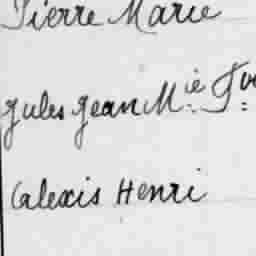 Pierre Marie
Jules Jean M.ie F
Alexis Henri